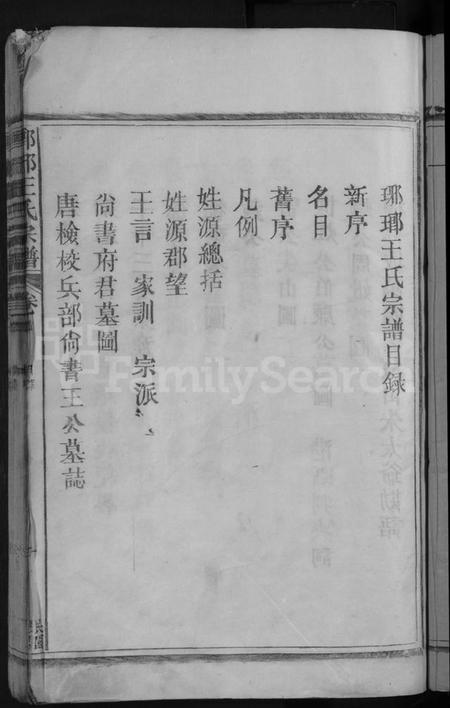 瑯琊王氏宗譜目録
新序
名目
舊序
凡例
姓源總括
姓源郡望
王言 家訓 宗派
尙書府君墓圖
唐檢校兵部尙書王公墓誌
王氏宗譜 卷
FamilySearch